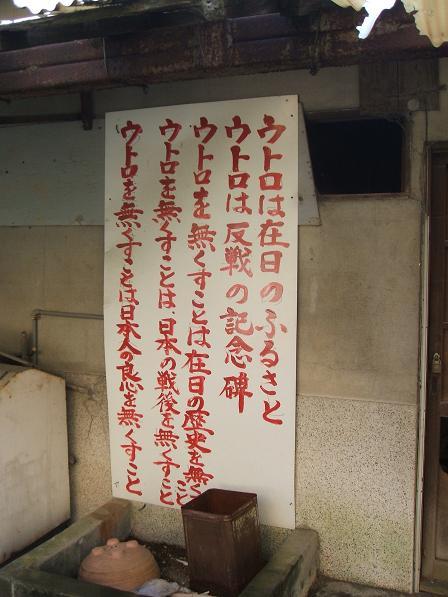 ウトロは在日のふるさと
ウトロは反戦の記念碑
ウトロを無くすことは在日の歴史を無くすこと
ウトロを無くすことは、日本の戦後を無くすこと
ウトロを無くすことは日本人の良心を無くすこと